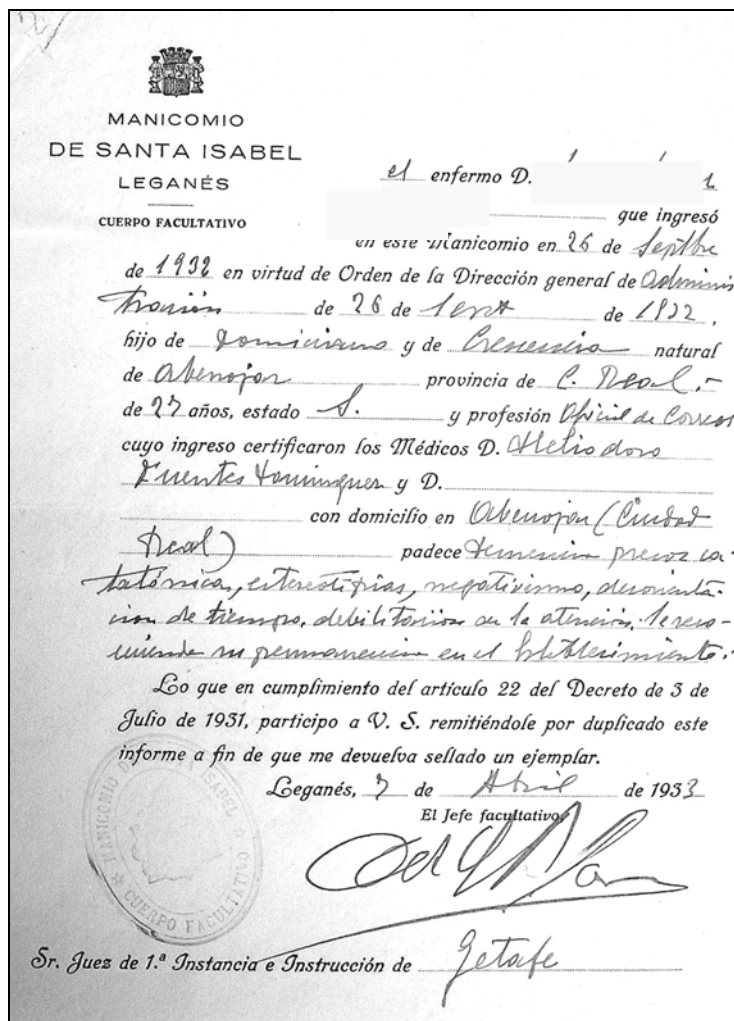 MANICOMIO
DE SANTA ISABEL
LEGANÉS
CUERPO FACULTATIVO
el enfermo D.
que ingresó
en este Manicomio en 26 de Septbre
de 1932 en virtud de Orden de la Dirección general de Adminis
tración de 26 de Sept de 1932,
hijo de Domiciano y de Crescencia natural
de Abenojar provincia de C. Real,-
de 27 años, estado S. y profesión Oficial de Correos
cuyo ingreso certificaron los Médicos D. Heliodoro
Fuentes Dominguez y D.
con domicilio en Abenojar (Ciudad
Real) padece demencia precoz ca-
tatónica, estereotipias, negativismo, desorienta-
cion de tiempo, debilitacion en la atención. Se reco-
mienda su permanencia en el Establecimiento.
Lo que en cumplimiento del artículo 22 del Decreto de 3 de
Julio de 1931, participo a V. S. remitiéndole por duplicado este
informe a fin de que me devuelva sellado un ejemplar.
Leganés, 7 de Abril de 1933
El Jefe facultativo,
MANICOMIO DE SANTA ISABEL
CUERPO FACULTATIVO
Sr. Juez de 1.ª Instancia e Instrucción de Getafe